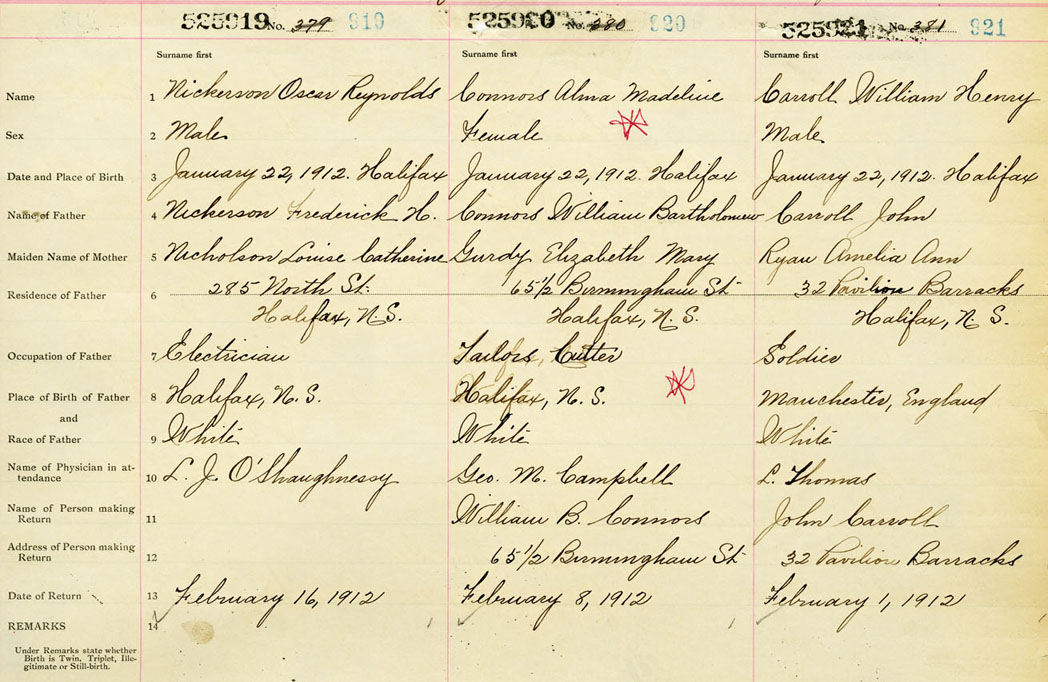 525919 No. 379 919
525920 No. 380 920
525921 No. 381 921
Surname first Surname first Surname first
Name 1 Nickerson Oscar Reynolds Connors Alma Madeline Carroll William Henry
Sex 2 Male Female Male
Date and Place of Birth 3 January 22, 1912. Halifax January 22, 1912. Halifax January 22, 1912. Halifax
Name of Father 4 Nickerson Frederick H. Connors William Bartholomew Carroll John
Maiden Name of Mother 5 Nicholson Louise Catherine Gurdy Elizabeth Mary Ryan Amelia Ann
Residence of Father 6 285 North St. 65 1/2 Birmingham St 32 Pavilion Barracks
Halifax, N.S. Halifax, N.S. Halifax, N.S.
Occupation of Father 7 Electrician Tailors, Cutter Soldier
Place of Birth of Father 8 Halifax, N.S. Halifax, N.S. Manchester, England
and
Race of Father 9 White White White
Name of Physician in at-
tendance 10 L. J. O'Shaughnessy Geo. M. Campbell L. Thomas
Name of Person making
Return 11 William B. Connors John Carroll
Address of Person making
Return 12 65 1/2 Birmingham St 32 Pavilion Barracks
Date of Return 13 February 16, 1912 February 8, 1912 February 1, 1912
REMARKS 14
Under Remarks state whether
Birth is Twin, Triplet, Ille-
gitimate or Still-birth.